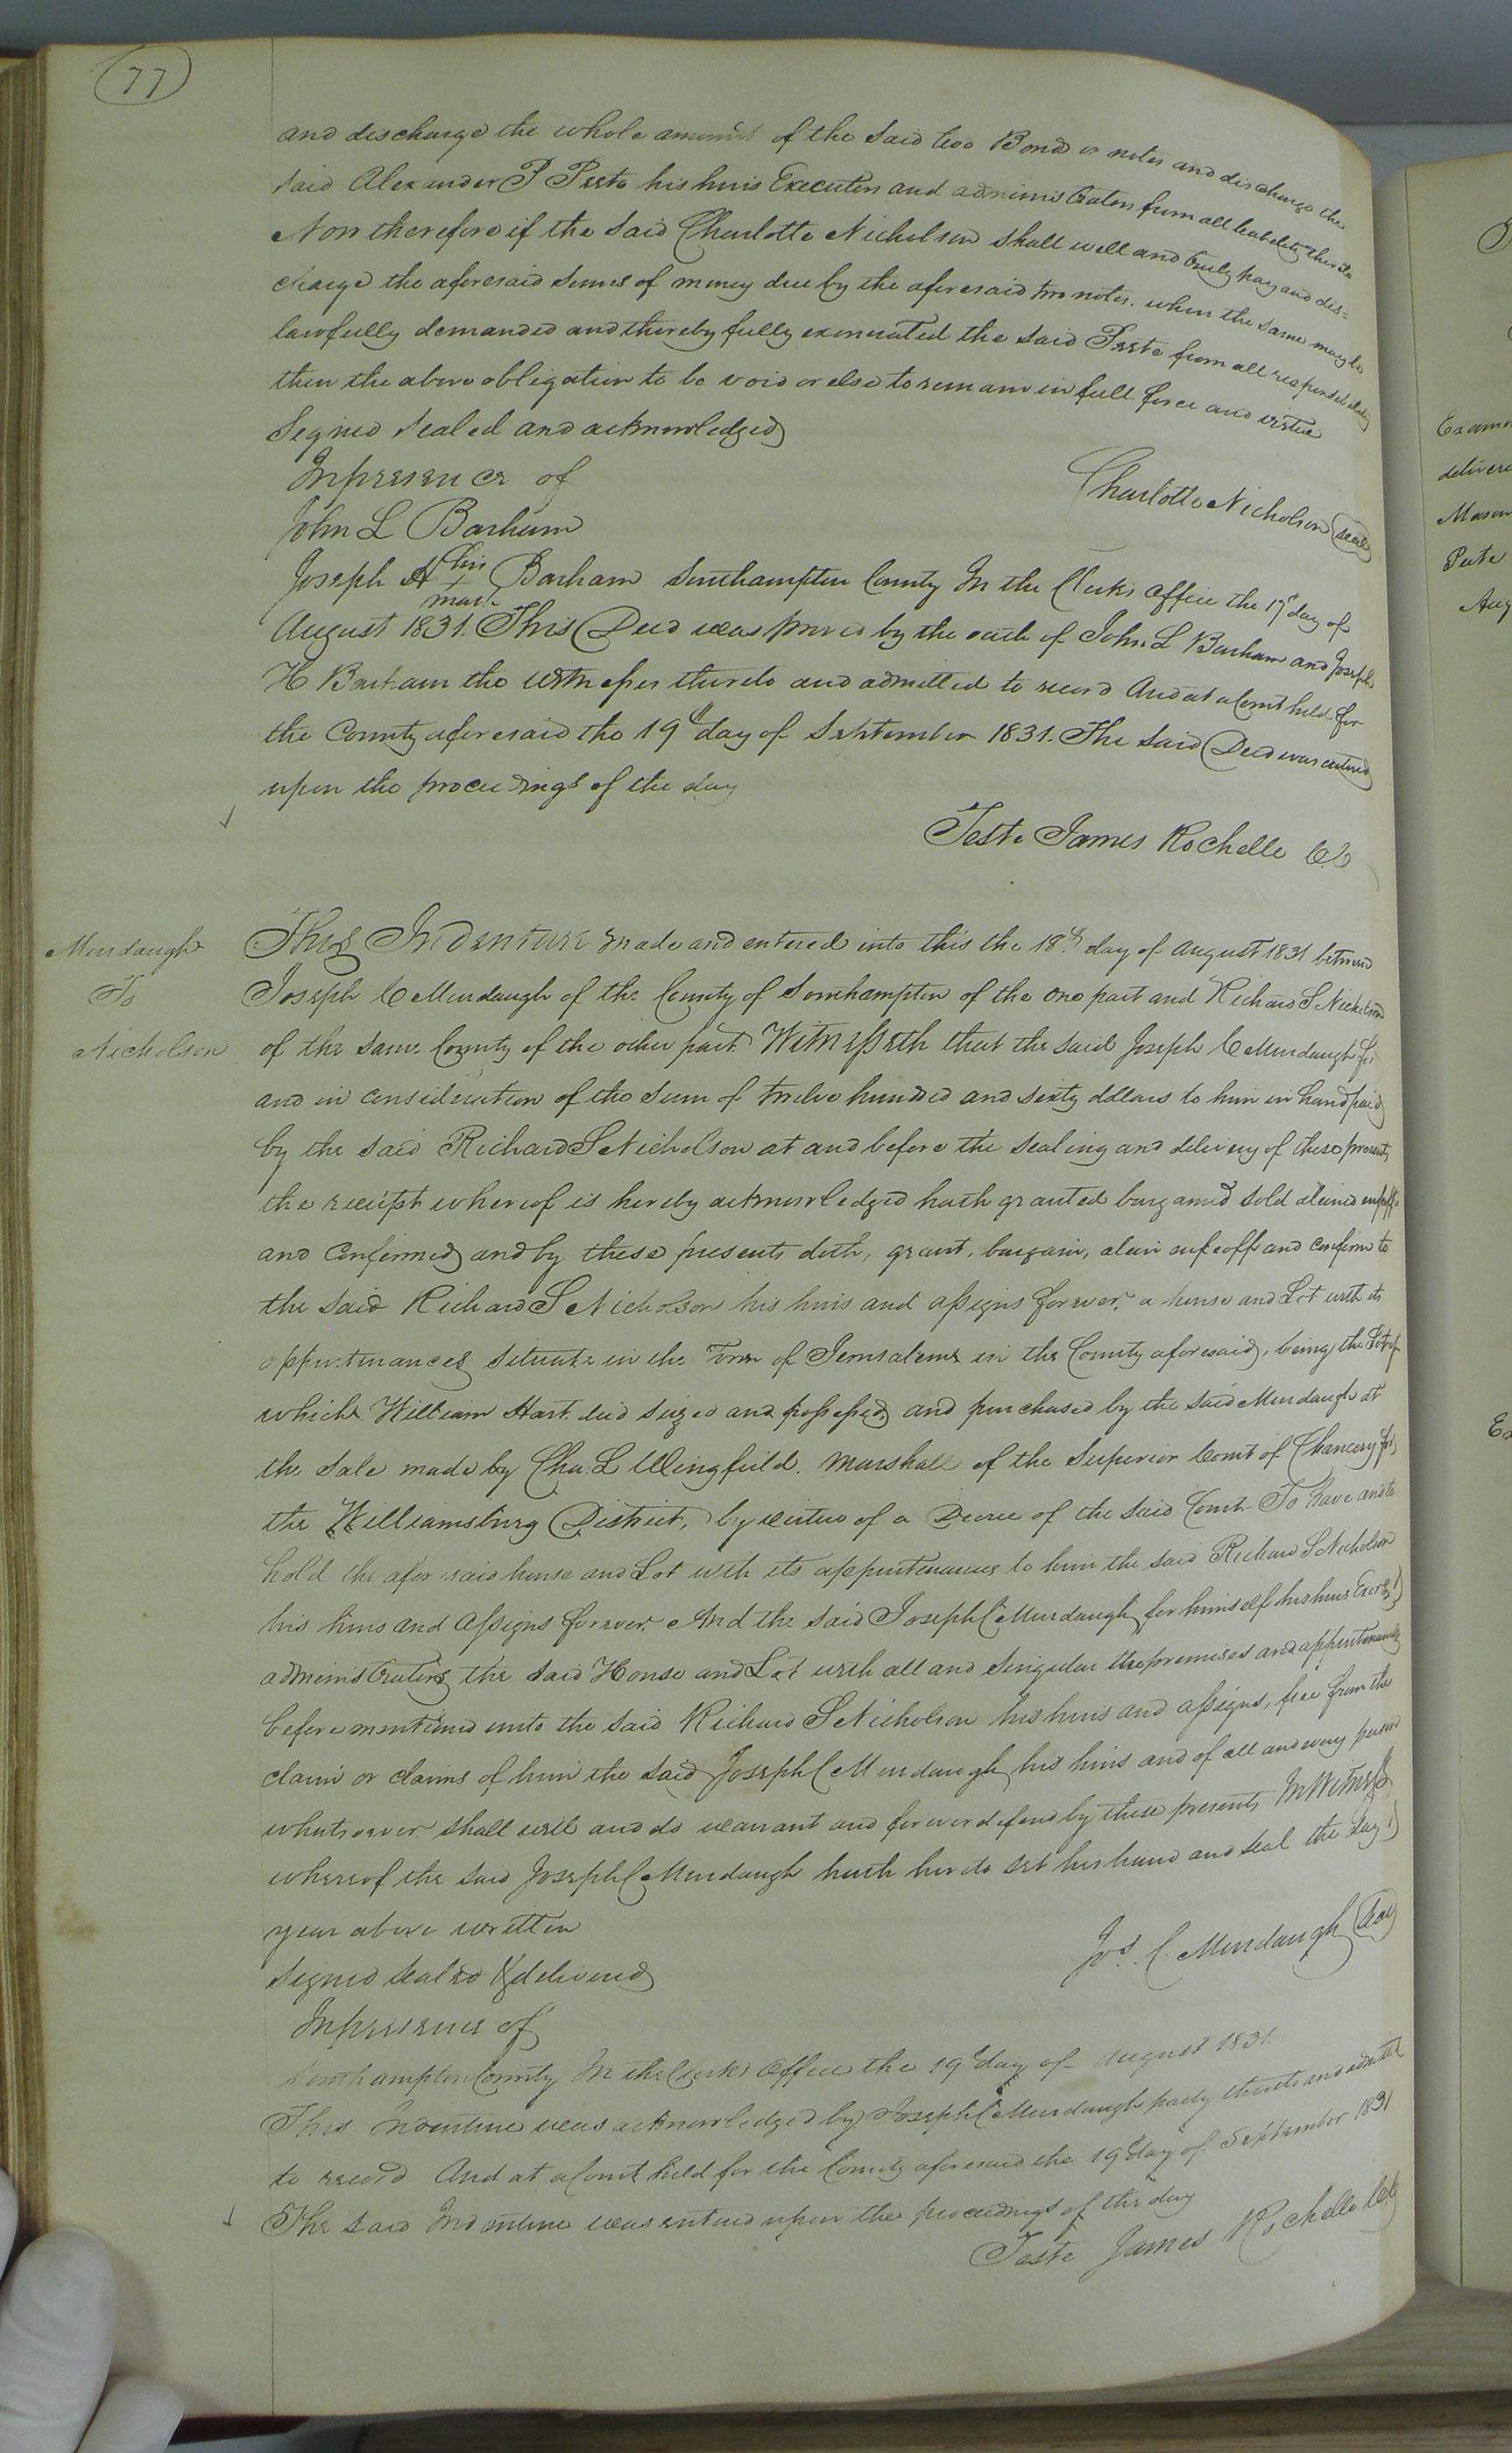 77
and discharge the whole amount of the said two Bonds or notes and discharge the
said Alexander P Peete his heirs Executors and administrators from all liability thereto
Now therefore if the said Charlotte Nicholson shall well and truly pay and dis-
charge the aforesaid sumes of money due by the aforesaid two notes. when the same may be
lawfully demanded and thereby fully exonerated the said Peete from all responsibility
then the above obligation to be void or else to remain in full force and virtue
Signed sealed and acknowledged
In presence of
Charlotte Nicholson seal
John L Barham
Joseph H his + mark Barham Southampton County In the Clerks office the 19th day of
August 1831. This Deed was proved by the oath of John L Barham and Joseph
H Barham the witnesses thereto and admitted to record And at a Court held for
the County aforesaid the 19th day of September 1831. The said Deed was entered
upon the proceedings of the day
Teste James Rochelle C.C
Murdaugh
To
Nicholson
This Indenture made and entered into this the 18th day of August 1831 between
Joseph C Murdaugh of the County of Southampton of the one part and Richard S Nicholson
of the same County of the other part. Witnesseth that the said Joseph C Murdaugh for
and in consideration of the sum of twelve hundred and sixty dollars to him in hand paid
by the said Richard S Nicholson at and before the sealing and delivery of these presents
the receipt whereof is hereby acknowledged hath granted bargained sold aliened enfeoff
and confirmed and by these presents doth, grant, bargain, alien enfeoff and confirm to
the said Richard S Nicholson his heirs and assigns forever, a house and Lot with its
appurtinances situate in the Town of Jerusalem in the County aforesaid, being the Lot of
which William Hart died seized and possessed and purchased by the said Murdaugh at
the sale made by Cha: L Wingfield. Marshall of the Superior Court of Chancery for
the Williamsburg District, by virtue of a Decree of the said Court To have and to
hold the afor said house and Lot with its appurtenances to him the said Richard S Nicholson
his heirs and assigns forever. And the said Joseph C Murdaugh for himself his heirs Exors &
administrators the said House and Lot with all and singular the premises and appurtenances
before mentioned unto the said Richard S Nicholson his heirs and assigns, free from the
claim or claims of him the said Joseph C Murdaugh his heirs and of all and every person
whatsoever shall will and do warrant and forever defend by these presents In Witness
whereof the said Joseph C Murdaugh hath hereto set his hand and seal the day &
year above written
Jos. C. Murdaugh seal
Signed sealed & delivered
In presence of
Southampton County In the Clerks Office the 19th day of August 1831.
This Indenture was acknowledged by Joseph C Murdaugh party thereto and admitted
to record And at a Court held for the County aforesaid the 19th day of September 1831
The said Indenture was entered upon the proceedings of the day
Teste James Rochelle C.C
delivere
Mason
Peete
Aug